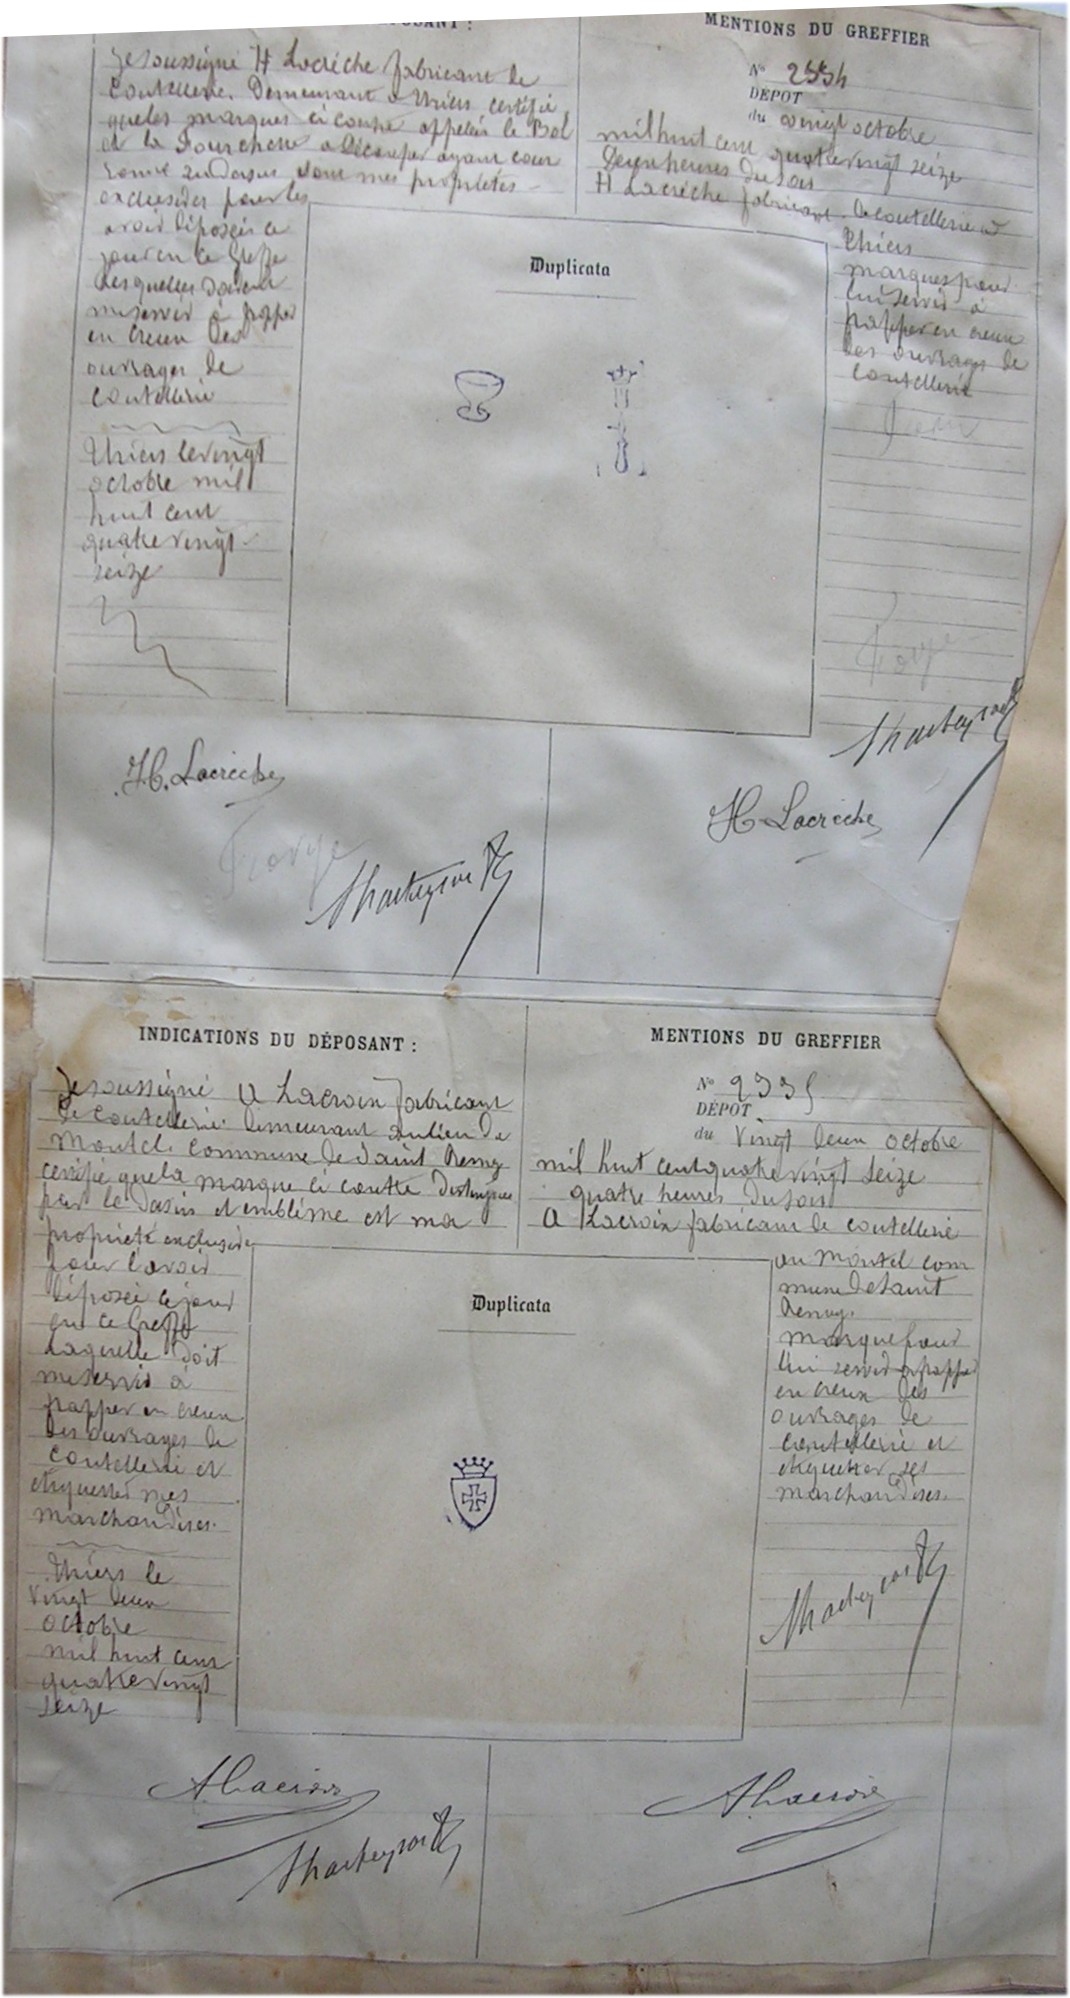 DÉPOSANT :
Je soussigné H Lacrèche fabricant de
Coutellerie. Demeurant à Thiers certifie
que les marques ci contre appelées le Bol
et la Fourchette à Découper ayant cour
ronne au dessus sont mes propriétés
exclusives pour les
avoir déposées ce
jour en ce Greffe
Lesquelles doivent
me servir à frapper
en creux des
ouvrages de
coutellerie
Thiers le vingt
octobre mil
huit cent
quatre vingt
seize
MENTIONS DU GREFFIER
N° 2334
DÉPOT
du vingt octobre
mil huit cent quatre vingt seize
Deux heures du soir
H Lacrèche fabricant de coutellerie à
Thiers
marques pour
lui servir à
frapper en creux
des ouvrages de
coutellerie
Duplicata
H. Lacrèche
H Lacrèche
INDICATIONS DU DÉPOSANT :
Je soussigné A Lacroix fabricant
de coutellerie demeurant au lieu de
Montel. Commune de Saint Remy
certifie que la marque ci contre distinguée
par le dessin et emblème est ma
propriété exclusive
pour l'avoir
déposée ce jour
en ce Greffe
Laquelle doit
me servir à
frapper en creux
des ouvrages de
coutellerie et
étiqueter mes
marchandises.
Thiers le
vingt deux
octobre
mil huit cent
quatre vingt
seize
MENTIONS DU GREFFIER
N° 2335
DÉPOT
du vingt deux octobre
mil huit cent quatre vingt seize
quatre heures du soir
A Lacroix fabricant de coutellerie
au Montel com
mune de Saint
Remy.
marque pour
lui servir à frapper
en creux des
ouvrages de
coutellerie et
étiqueter ses
marchandises.
Duplicata
A Lacroix
A Lacroix